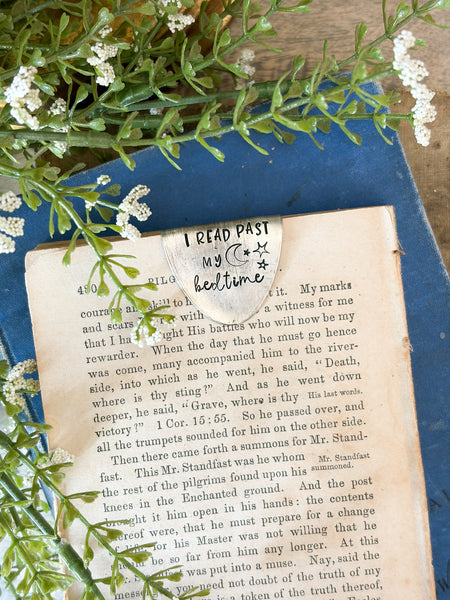 I READ PAST
MY
bedtime
480 PILG
courage and skill to h t it. My marks
and scars a witness for me
that I ha ught His battles who will now be my
rewarder. When the day that he must go hence
was come, many accompanied him to the river-
side, into which as he went, he said, "Death,
where is thy sting?" And as he went down
deeper, he said, "Grave, where is thy
His last words.
victory?" 1 Cor. 15:55. So he passed over, and
all the trumpets sounded for him on the other side.
Then there came forth a summons for Mr. Stand-
fast. This Mr. Standfast was he whom
Mr. Standfast
summoned.
the rest of the pilgrims found upon his
knees in the Enchanted ground. And the post
ought it him open in his hands: the contents
ereof were, that he must prepare for a change
life, for his Master was not willing that he
ould be so far from him any longer. At this
was put into a muse. Nay, said the
messenger, you need not doubt of the truth of my
is a token of the truth thereof,